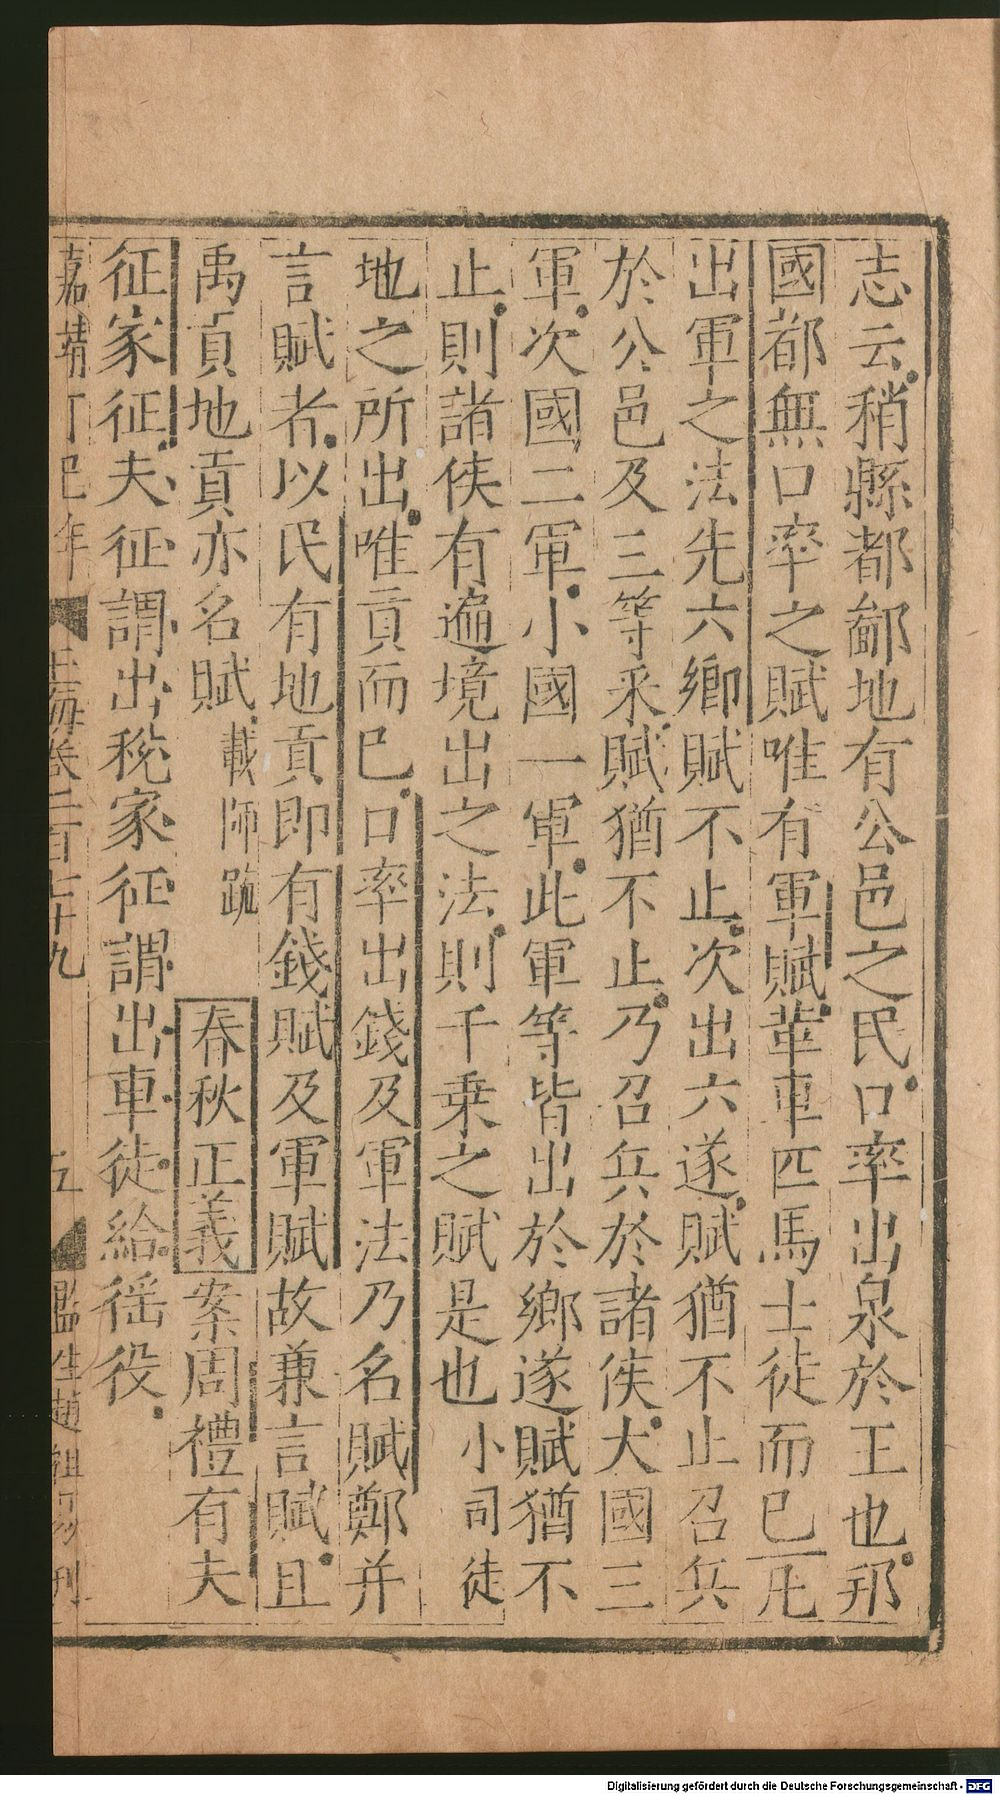 志云稍縣都鄙地有公邑之民口率出泉於王也邦
國都無口率之賦唯有軍賦革車匹馬士徒而已凡
出軍之法先六鄉賦不止次出六遂賦猶不止召兵
於公邑及三等采賦猶不止乃召兵於諸侯大國三
軍次國二軍小國一軍此軍等皆出於鄉遂賦猶不
止則諸侯有遍境出之法則千乗之賦是也小司徒
地之所出唯貢而已口率出錢及軍法乃名賦鄭并
言賦者以民有地貢即有錢賦及軍賦故兼言賦且
禹貢地貢亦名賦載師疏春秋正義案周禮有夫
征家征夫征謂出稅家征謂出車徒給徭役
嘉靖丁巳年 玉海卷二百七十九 五 監生趙祖刊
Digitalisierung gefördert durch die Deutsche Forschungsgemeinschaft - DFG